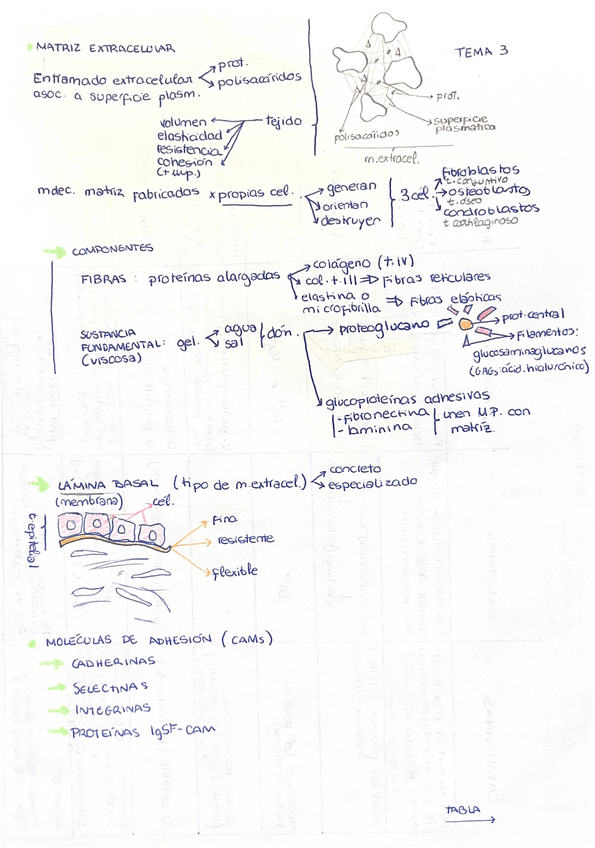 MATRIZ EXTRACELULAR
TEMA 3
Entramado extracelular
prot.
polisacáridos
asoc. a superficie plasm.
volumen
tejido
elasticidad
resistencia
cohesión
(t. sup.)
prot.
superficie
plasmática
polisacáridos
m.extracel.
mdec. matriz fabricadas x propias cel.
generan
orientan
destruyen
3 cél.
Fibroblastos
t. conjuntivo
osteoblastos
t. óseo
condroblastos
t cartilaginoso
COMPONENTES
FIBRAS : proteínas alargadas
colágeno (t. IV)
col. t. III ⇒ Fibras reticulares
elastina o
microfibrilla
⇒ Fibras elásticas
SUSTANCIA
FUNDAMENTAL:
(VISCOSA)
gel.
agua
sal
dón.
proteoglucano
prot. central
Filamentos:
glucosaminaglucanos
(GAGs: ácid. hialurónico)
glucoproteínas adhesivas
- Fibronectina
- laminina
unen M.P. con
matriz.
LÁMINA BASAL (tipo de m.extracel.)
concreto
especializado
(membrana)
cél.
t. epitelial
Fina
resistente
flexible
MOLÉCULAS DE ADHESIÓN (CAMs)
CADHERINAS
SELECTINAS
INTEGRINAS
PROTEÍNAS IgSF-CAM
TABLA